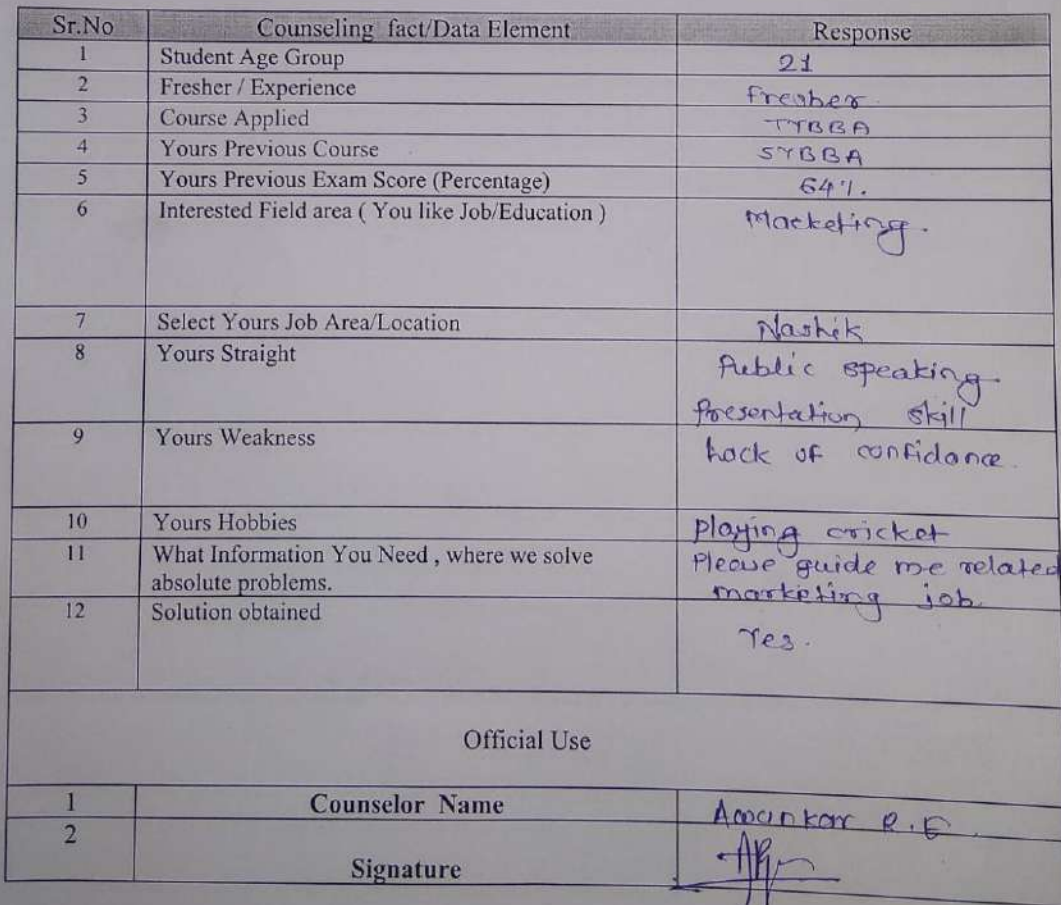 Sr.No Counseling fact/Data Element Response
1 Student Age Group 21
2 Fresher / Experience Fresher
3 Course Applied TYBBA
4 Yours Previous Course SYBBA
5 Yours Previous Exam Score (Percentage) 64%.
6 Interested Field area ( You like Job/Education ) Marketing.
7 Select Yours Job Area/Location Nashik
8 Yours Straight Public speaking
Presentation skill
9 Yours Weakness Lack of confidance.
10 Yours Hobbies playing cricket
11 What Information You Need , where we solve Please guide me related
absolute problems. marketing job
12 Solution obtained
Yes.
Official Use
1 Counselor Name R.E.
2
Signature